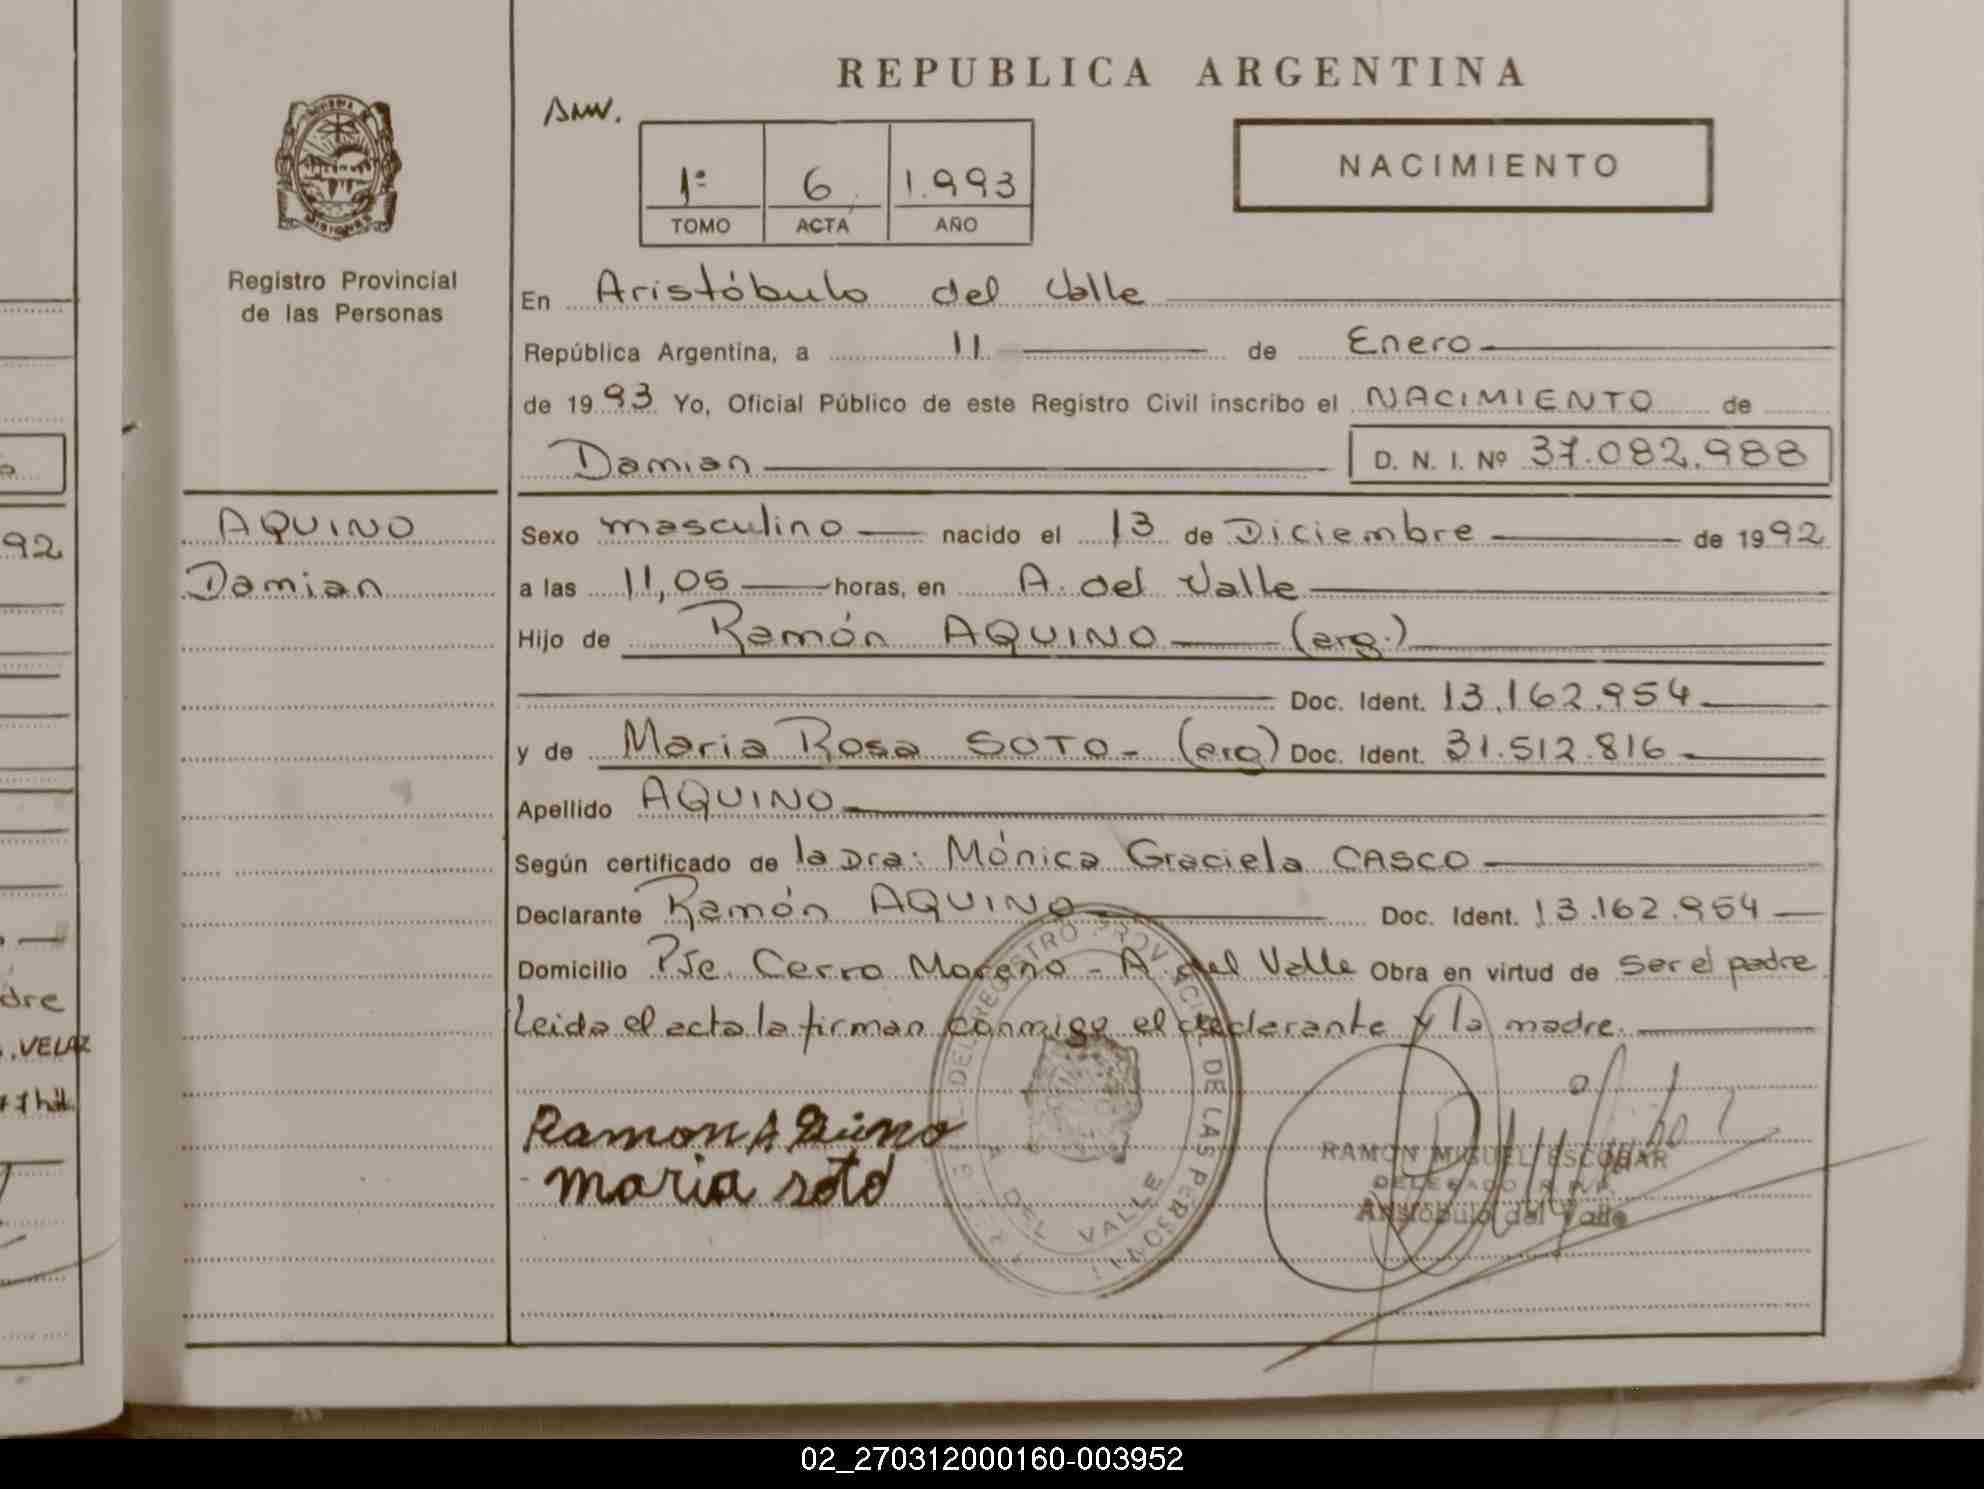 REPUBLICA ARGENTINA
NACIMIENTO
1º 6 1.993
TOMO ACTA AÑO
MISIONES
Registro Provincial
de las Personas
En Aristóbulo del Valle
República Argentina, a 11 de Enero
de 1993 Yo, Oficial Público de este Registro Civil inscribo el NACIMIENTO de
Damian D. N. I. Nº 37.082.988
AQUINO
Damian
Sexo masculino nacido el 13 de Diciembre de 1992
a las 11,05 horas, en A. del Valle
Hijo de Ramón AQUINO (arg.)
Doc. Ident. 13.162.954
y de Maria Rosa SOTO - (arg) Doc. Ident. 31.512.816
Apellido AQUINO
Según certificado de la Dra: Mónica Graciela CASCO
Declarante Ramón AQUINO Doc. Ident. 13.162.954
Domicilio Pje. Cerro Moreno - A. del Valle Obra en virtud de ser el padre
Leida el acta la firman conmigo el declarante y la madre.
Ramon
maria soto
DEL REGISTRO PROVINCIAL DE LAS PERSONAS
DEL VALLE
RAMON MIGUEL ESCOBAR
DELEGADO R.P.P.
Aristóbulo del Valle
92
dre
VELAZ
02_270312000160-003952